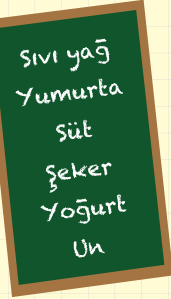 Sıvı yağ
Yumurta
Süt
Şeker
Yoğurt
Un